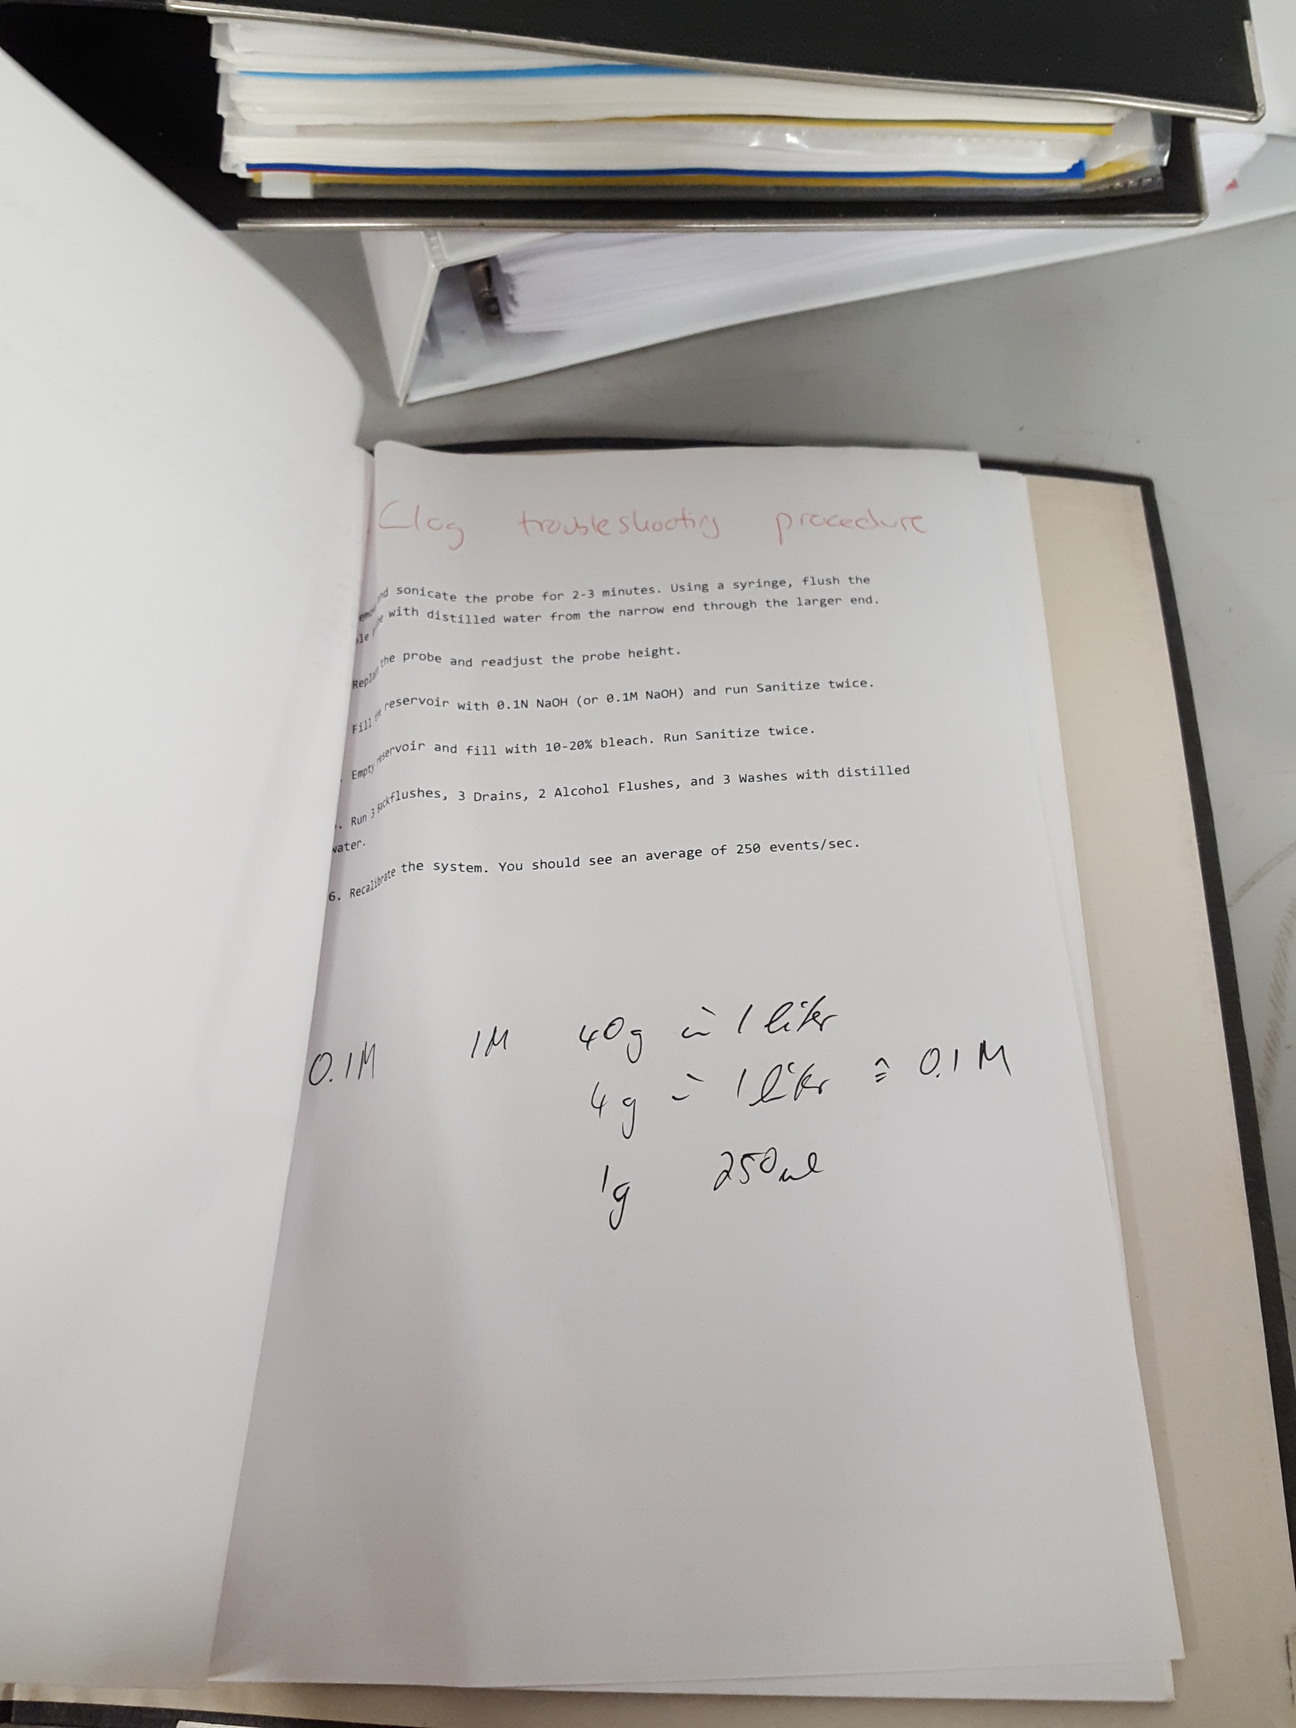 Clog troubleshooting procedure
nd sonicate the probe for 2-3 minutes. Using a syringe, flush the
le with distilled water from the narrow end through the larger end.
Replace the probe and readjust the probe height.
Fill the reservoir with 0.1N NaOH (or 0.1M NaOH) and run Sanitize twice.
. Empty reservoir and fill with 10-20% bleach. Run Sanitize twice.
. Run 3 Backflushes, 3 Drains, 2 Alcohol Flushes, and 3 Washes with distilled
water.
6. Recalibrate the system. You should see an average of 250 events/sec.
0.1M 1M 40g in 1 liter
4g in 1 liter ≙ 0.1M
1g 250ml